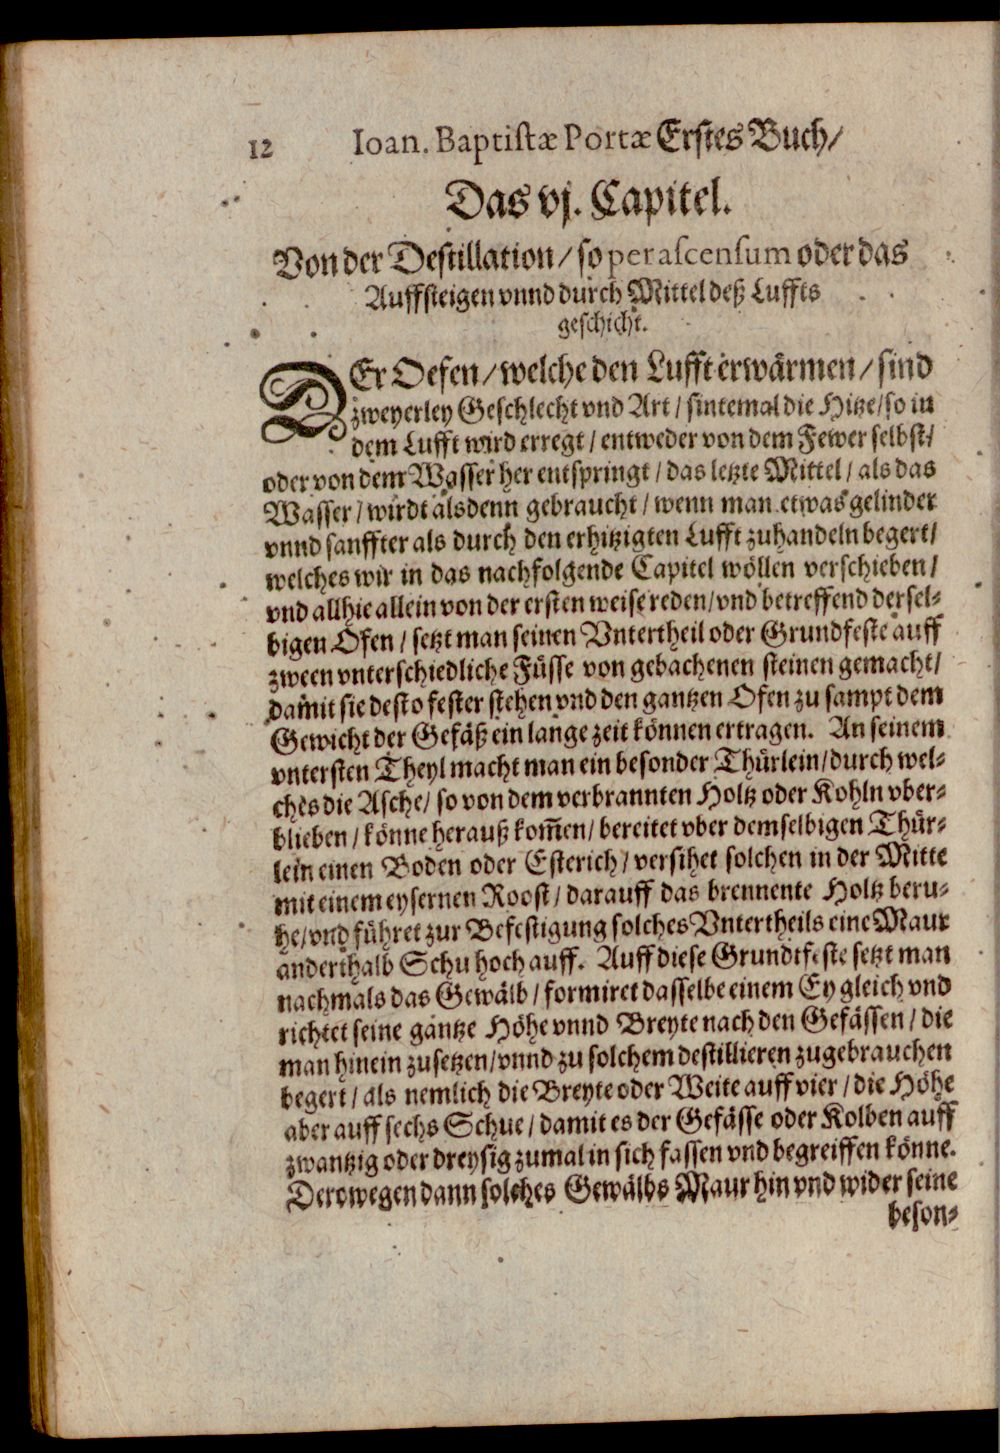 12 Ioan. Baptistæ Portæ Erstes Buch/
Das vj. Capitel.
Von der Destillation/ so per ascensum oder das
Auffsteigen vnnd durch Mittel deß Luffts
geschicht.
DEr Oefen/ welche den Lufft erwärmen/ sind
zweyerley Geschlecht vnd Art/ sintemal die Hitze/ so in
dem Lufft wird erregt/ entweder von dem Fewer selbst/
oder von dem Wasser her entspringt/ das letzte Mittel/ als das
Wasser/ wirdt alsdenn gebraucht/ wenn man etwas gelinder
vnnd sanffter als durch den erhitzigten Lufft zuhandeln begert/
welches wir in das nachfolgende Capitel wöllen verschieben/
vnd allhie allein von der ersten weise reden/ vnd betreffend dersel-
bigen Ofen/ setzt man seinen Vntertheil oder Grundfeste auff
zween vnterschiedliche Füsse von gebachenen steinen gemacht/
damit sie desto fester stehen vnd den gantzen Ofen zu sampt dem
Gewicht der Gefäß ein lange zeit können ertragen. An seinem
vntersten Theyl macht man ein besonder Thürlein/ durch wel-
ches die Asche/ so von dem verbrannten Holtz oder Kohln vber-
blieben/ könne herauß kom̃en/ bereitet vber demselbigen Thür-
lein einen Boden oder Esterich/ versihet solchen in der Mitte
mit einem eysernen Roost/ darauff das brennente Holtz beru-
he/ vnd führet zur Befestigung solches Vntertheils eine Maur
anderthalb Schu hoch auff. Auff diese Grundtfeste setzt man
nachmals das Gewälb/ formiret dasselbe einem Ey gleich vnd
richtet seine gäntze Höhe vnnd Breyte nach den Gefässen/ die
man hinein zusetzen/ vnnd zu solchem destillieren zugebrauchen
begert/ als nemlich die Breyte oder Weite auff vier/ die Höhe
aber auff sechs Schue/ damit es der Gefässe oder Kolben auff
zwantzig oder dreysig zumal in sich fassen vnd begreiffen könne.
Derowegen dann solches Gewälbs Maur hin vnd wider seine
beson-